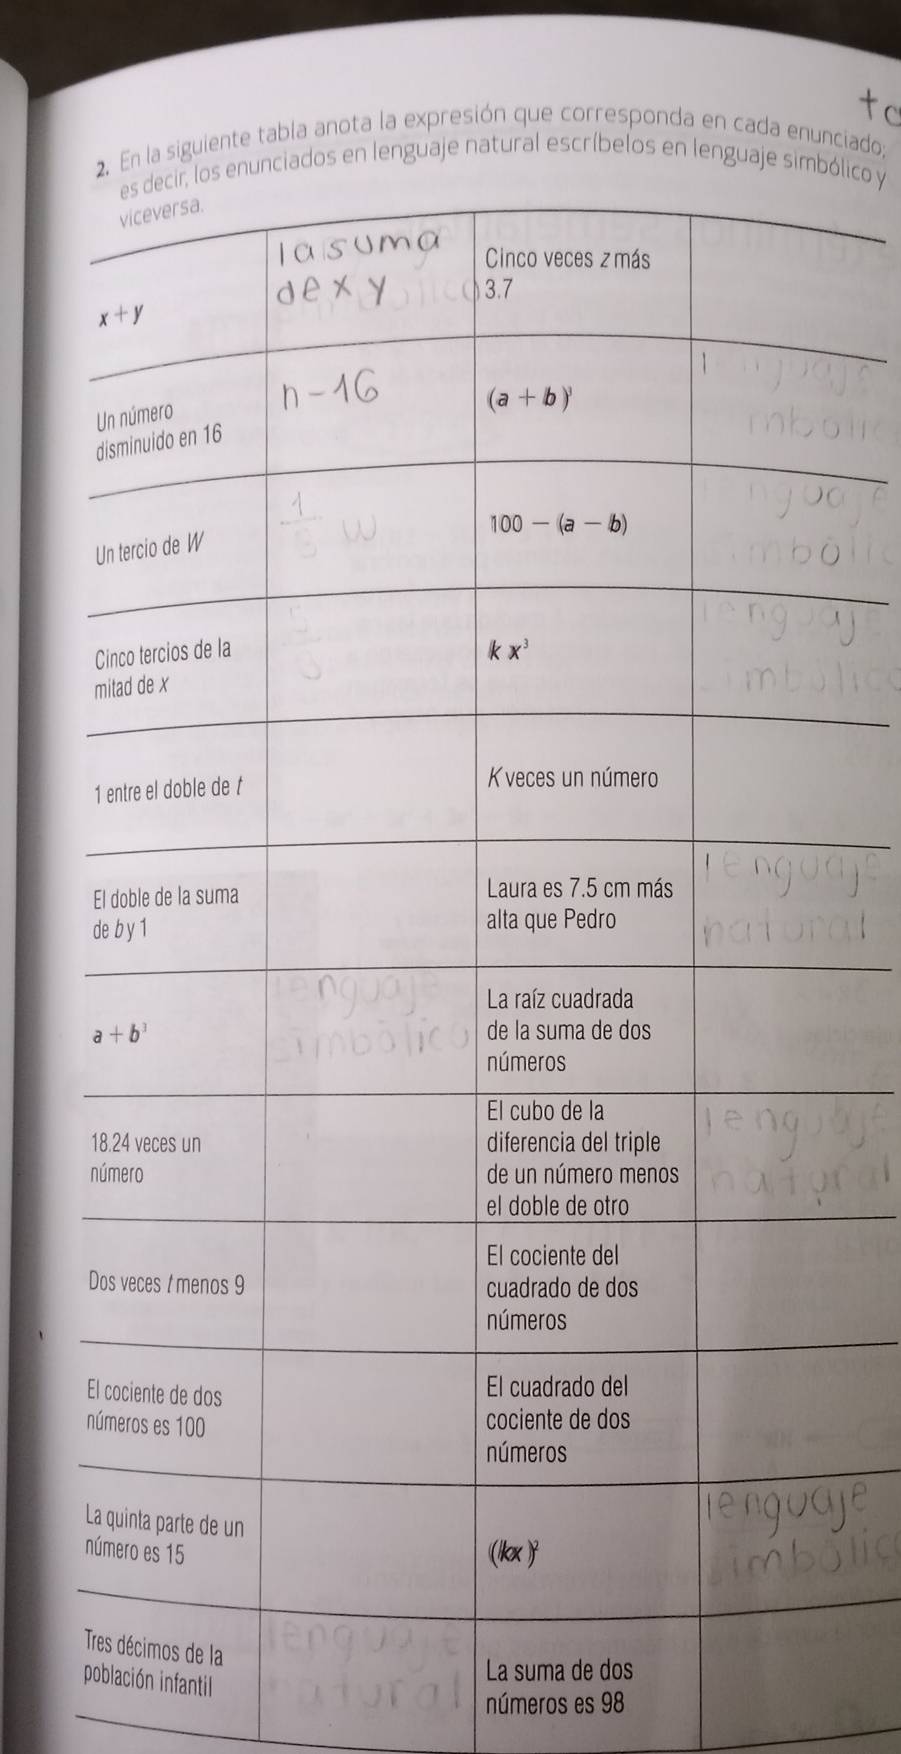 2. En la siguiente tabla anota la expresión que corresponda en cada enunciado;
es decir, los enunciados en lenguaje natural escríbelos en lenguaje simbólico y
viceversa.
x + y
la suma
de x y
Cinco veces z más
3.7
Un número
disminuido en 16
n - 16
(a + b)³
Un tercio de W
1/3 W
100 − (a − b)
Cinco tercios de la
mitad de x
k x³
lenguaje
simbolico
1 entre el doble de t
K veces un número
El doble de la suma
de b y 1
Laura es 7.5 cm más
alta que Pedro
lenguaje
natural
a + b³
lenguaje
simbolico
La raíz cuadrada
de la suma de dos
números
18.24 veces un
número
El cubo de la
diferencia del triple
de un número menos
el doble de otro
lenguaje
natural
Dos veces l menos 9
El cociente del
cuadrado de dos
números
El cociente de dos
números es 100
El cuadrado del
cociente de dos
números
La quinta parte de un
número es 15
(kx)²
lenguaje
simbolico
Tres décimos de la
población infantil
lenguaje
natural
La suma de dos
números es 98